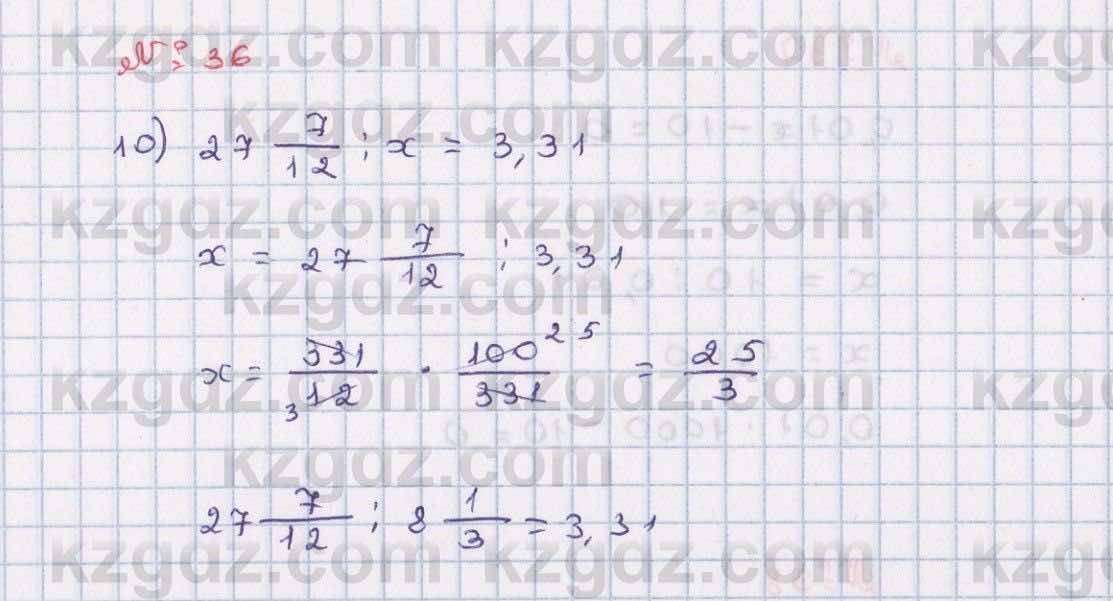 № 36
10) 27 7/12 : x = 3,31
x = 27 7/12 : 3,31
x = 331/12 · 100/331 = 25/3
3 25
27 7/12 : 8 1/3 = 3,31
kzgdz.com kzgdz.com kzgdz.com
kzgdz.com
kzgdz.com kzgdz.com kzgdz.com
kzgdz.com
kzgdz.com kzgdz.com kzgdz.com
kzgdz.com
kzgdz.com kzgdz.com kzgdz.com